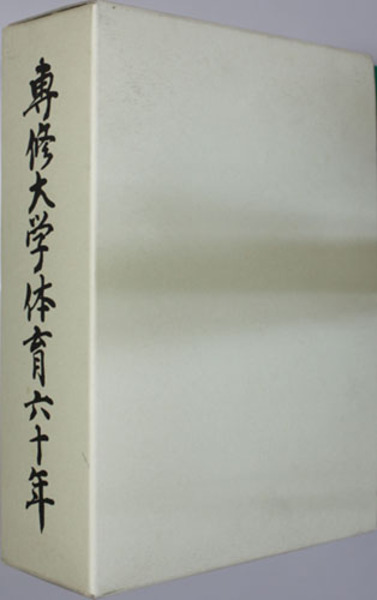 専修大学体育六十年